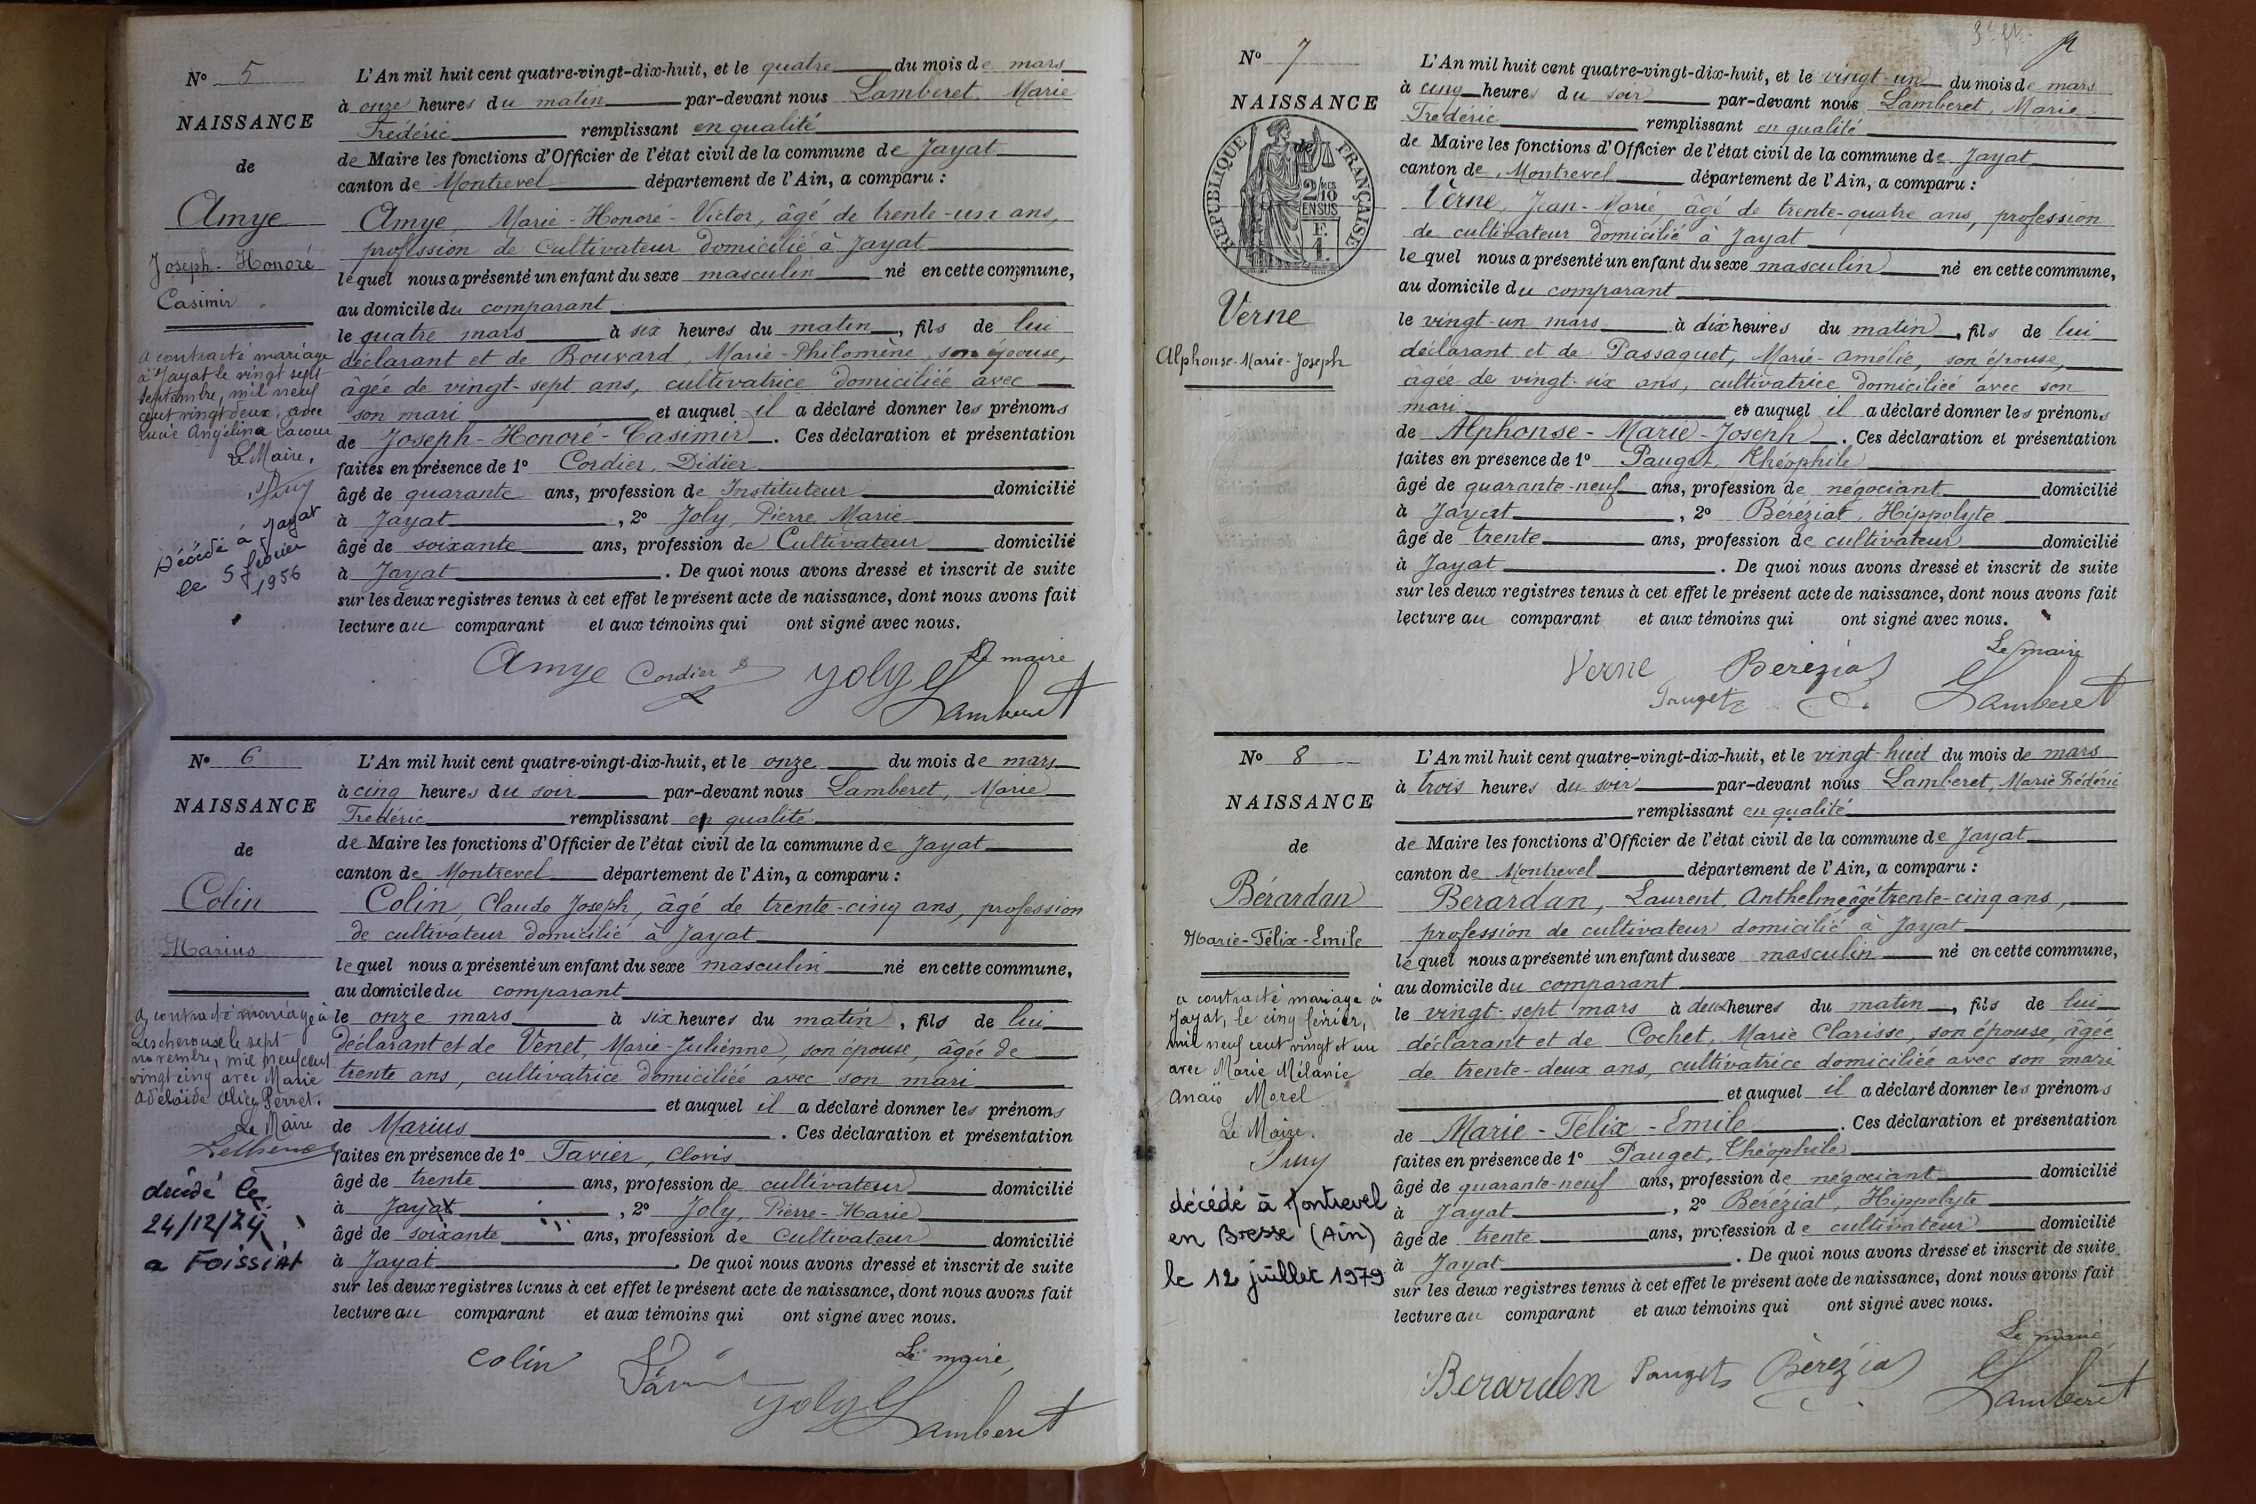 N° 5
NAISSANCE
de
Amye
Joseph-Honoré
Casimir
a contracté mariage
à Jayat le vingt sept
septembre, mil neuf
cent vingt deux, avec
Lucie Angelina Lacour
Le Maire,
Décédé à Jayat
le 5 février
1956
L'An mil huit cent quatre-vingt-dix-huit, et le quatre du mois de mars
à onze heures du matin par-devant nous Lamberet, Marie
Frédéric remplissant en qualité
de Maire les fonctions d'Officier de l'état civil de la commune de Jayat
canton de Montrevel département de l'Ain, a comparu :
Amye, Marie-Honoré-Victor, âgé de trente-un ans,
profession de Cultivateur domicilié à Jayat
lequel nous a présenté un enfant du sexe masculin né en cette commune,
au domicile du comparant
le quatre mars à six heures du matin, fils de lui
déclarant et de Bouvard, Marie-Philomène, son épouse,
âgée de vingt-sept ans, cultivatrice domiciliée avec
son mari et auquel il a déclaré donner les prénoms
de Joseph-Honoré-Casimir. Ces déclaration et présentation
faites en présence de 1° Cordier, Didier
âgé de quarante ans, profession de Instituteur domicilié
à Jayat, 2° Joly, Pierre Marie
âgé de soixante ans, profession de Cultivateur domicilié
à Jayat. De quoi nous avons dressé et inscrit de suite
sur les deux registres tenus à cet effet le présent acte de naissance, dont nous avons fait
lecture au comparant et aux témoins qui ont signé avec nous.
Le maire
Amye Cordier D Joly Lamberet
N° 6
NAISSANCE
de
Colin
Marius
a contracté mariage à
Lescheroux le sept
novembre, mil neuf cent
vingt cinq avec Marie
Adélaïde Alice Perret.
Le Maire
décédé le
24/12/74
a Foissiat
L'An mil huit cent quatre-vingt-dix-huit, et le onze du mois de mars
à cinq heures du soir par-devant nous Lamberet, Marie
Frédéric remplissant en qualité
de Maire les fonctions d'Officier de l'état civil de la commune de Jayat
canton de Montrevel département de l'Ain, a comparu :
Colin, Claude Joseph, âgé de trente-cinq ans, profession
de cultivateur domicilié à Jayat
lequel nous a présenté un enfant du sexe masculin né en cette commune,
au domicile du comparant
le onze mars à six heures du matin, fils de lui
déclarant et de Venet, Marie-Julienne, son épouse, âgée de
trente ans, cultivatrice domiciliée avec son mari
et auquel il a déclaré donner les prénoms
de Marius. Ces déclaration et présentation
faites en présence de 1° Favier, Clovis
âgé de trente ans, profession de cultivateur domicilié
à Jayat, 2° Joly, Pierre-Marie
âgé de soixante ans, profession de Cultivateur domicilié
à Jayat. De quoi nous avons dressé et inscrit de suite
sur les deux registres tenus à cet effet le présent acte de naissance, dont nous avons fait
lecture au comparant et aux témoins qui ont signé avec nous.
Le maire,
Colin Joly Lamberet
N° 7
NAISSANCE
de
REPUBLIQUE FRANÇAISE
2/10 MES
EN SUS
F.
1.
Verne
Alphonse-Marie-Joseph
L'An mil huit cent quatre-vingt-dix-huit, et le vingt-un du mois de mars
à cinq heures du soir par-devant nous Lamberet, Marie
Frédéric remplissant en qualité
de Maire les fonctions d'Officier de l'état civil de la commune de Jayat
canton de Montrevel département de l'Ain, a comparu :
Verne, Jean-Marie, âgé de trente-quatre ans, profession
de cultivateur domicilié à Jayat
lequel nous a présenté un enfant du sexe masculin né en cette commune,
au domicile du comparant
le vingt-un mars à dix heures du matin, fils de lui
déclarant et de Passaquet, Marie-Amélie, son épouse,
âgée de vingt-six ans, cultivatrice domiciliée avec son
mari et auquel il a déclaré donner les prénoms
de Alphonse-Marie-Joseph. Ces déclaration et présentation
faites en présence de 1° Pauget, Théophile
âgé de quarante-neuf ans, profession de négociant domicilié
à Jayat, 2° Béréziat, Hippolyte
âgé de trente ans, profession de cultivateur domicilié
à Jayat. De quoi nous avons dressé et inscrit de suite
sur les deux registres tenus à cet effet le présent acte de naissance, dont nous avons fait
lecture au comparant et aux témoins qui ont signé avec nous.
Le maire
Verne Bereziat
Pauget Lamberet
N° 8
NAISSANCE
de
Bérardan
Marie-Félix-Emile
a contracté mariage à
Jayat, le cinq février,
mil neuf cent vingt et un
avec Marie Mélanie
Anaïs Morel
Le Maire.
décédé à Montrevel
en Bresse (Ain)
le 12 juillet 1979
L'An mil huit cent quatre-vingt-dix-huit, et le vingt-huit du mois de mars
à trois heures du soir par-devant nous Lamberet, Marie Frédéric
remplissant en qualité
de Maire les fonctions d'Officier de l'état civil de la commune de Jayat
canton de Montrevel département de l'Ain, a comparu :
Berardan, Laurent, Anthelme âgé trente-cinq ans,
profession de cultivateur domicilié à Jayat
lequel nous a présenté un enfant du sexe masculin né en cette commune,
au domicile du comparant
le vingt-sept mars à deux heures du matin, fils de lui
déclarant et de Cochet, Marie Clarisse, son épouse, âgée
de trente-deux ans, cultivatrice domiciliée avec son mari
et auquel il a déclaré donner les prénoms
de Marie-Félix-Emile. Ces déclaration et présentation
faites en présence de 1° Pauget, Théophile
âgé de quarante-neuf ans, profession de négociant domicilié
à Jayat, 2° Béréziat, Hippolyte
âgé de trente ans, profession de cultivateur domicilié
à Jayat. De quoi nous avons dressé et inscrit de suite
sur les deux registres tenus à cet effet le présent acte de naissance, dont nous avons fait
lecture au comparant et aux témoins qui ont signé avec nous.
Le maire
Berardan Pauget Béréziat Lamberet